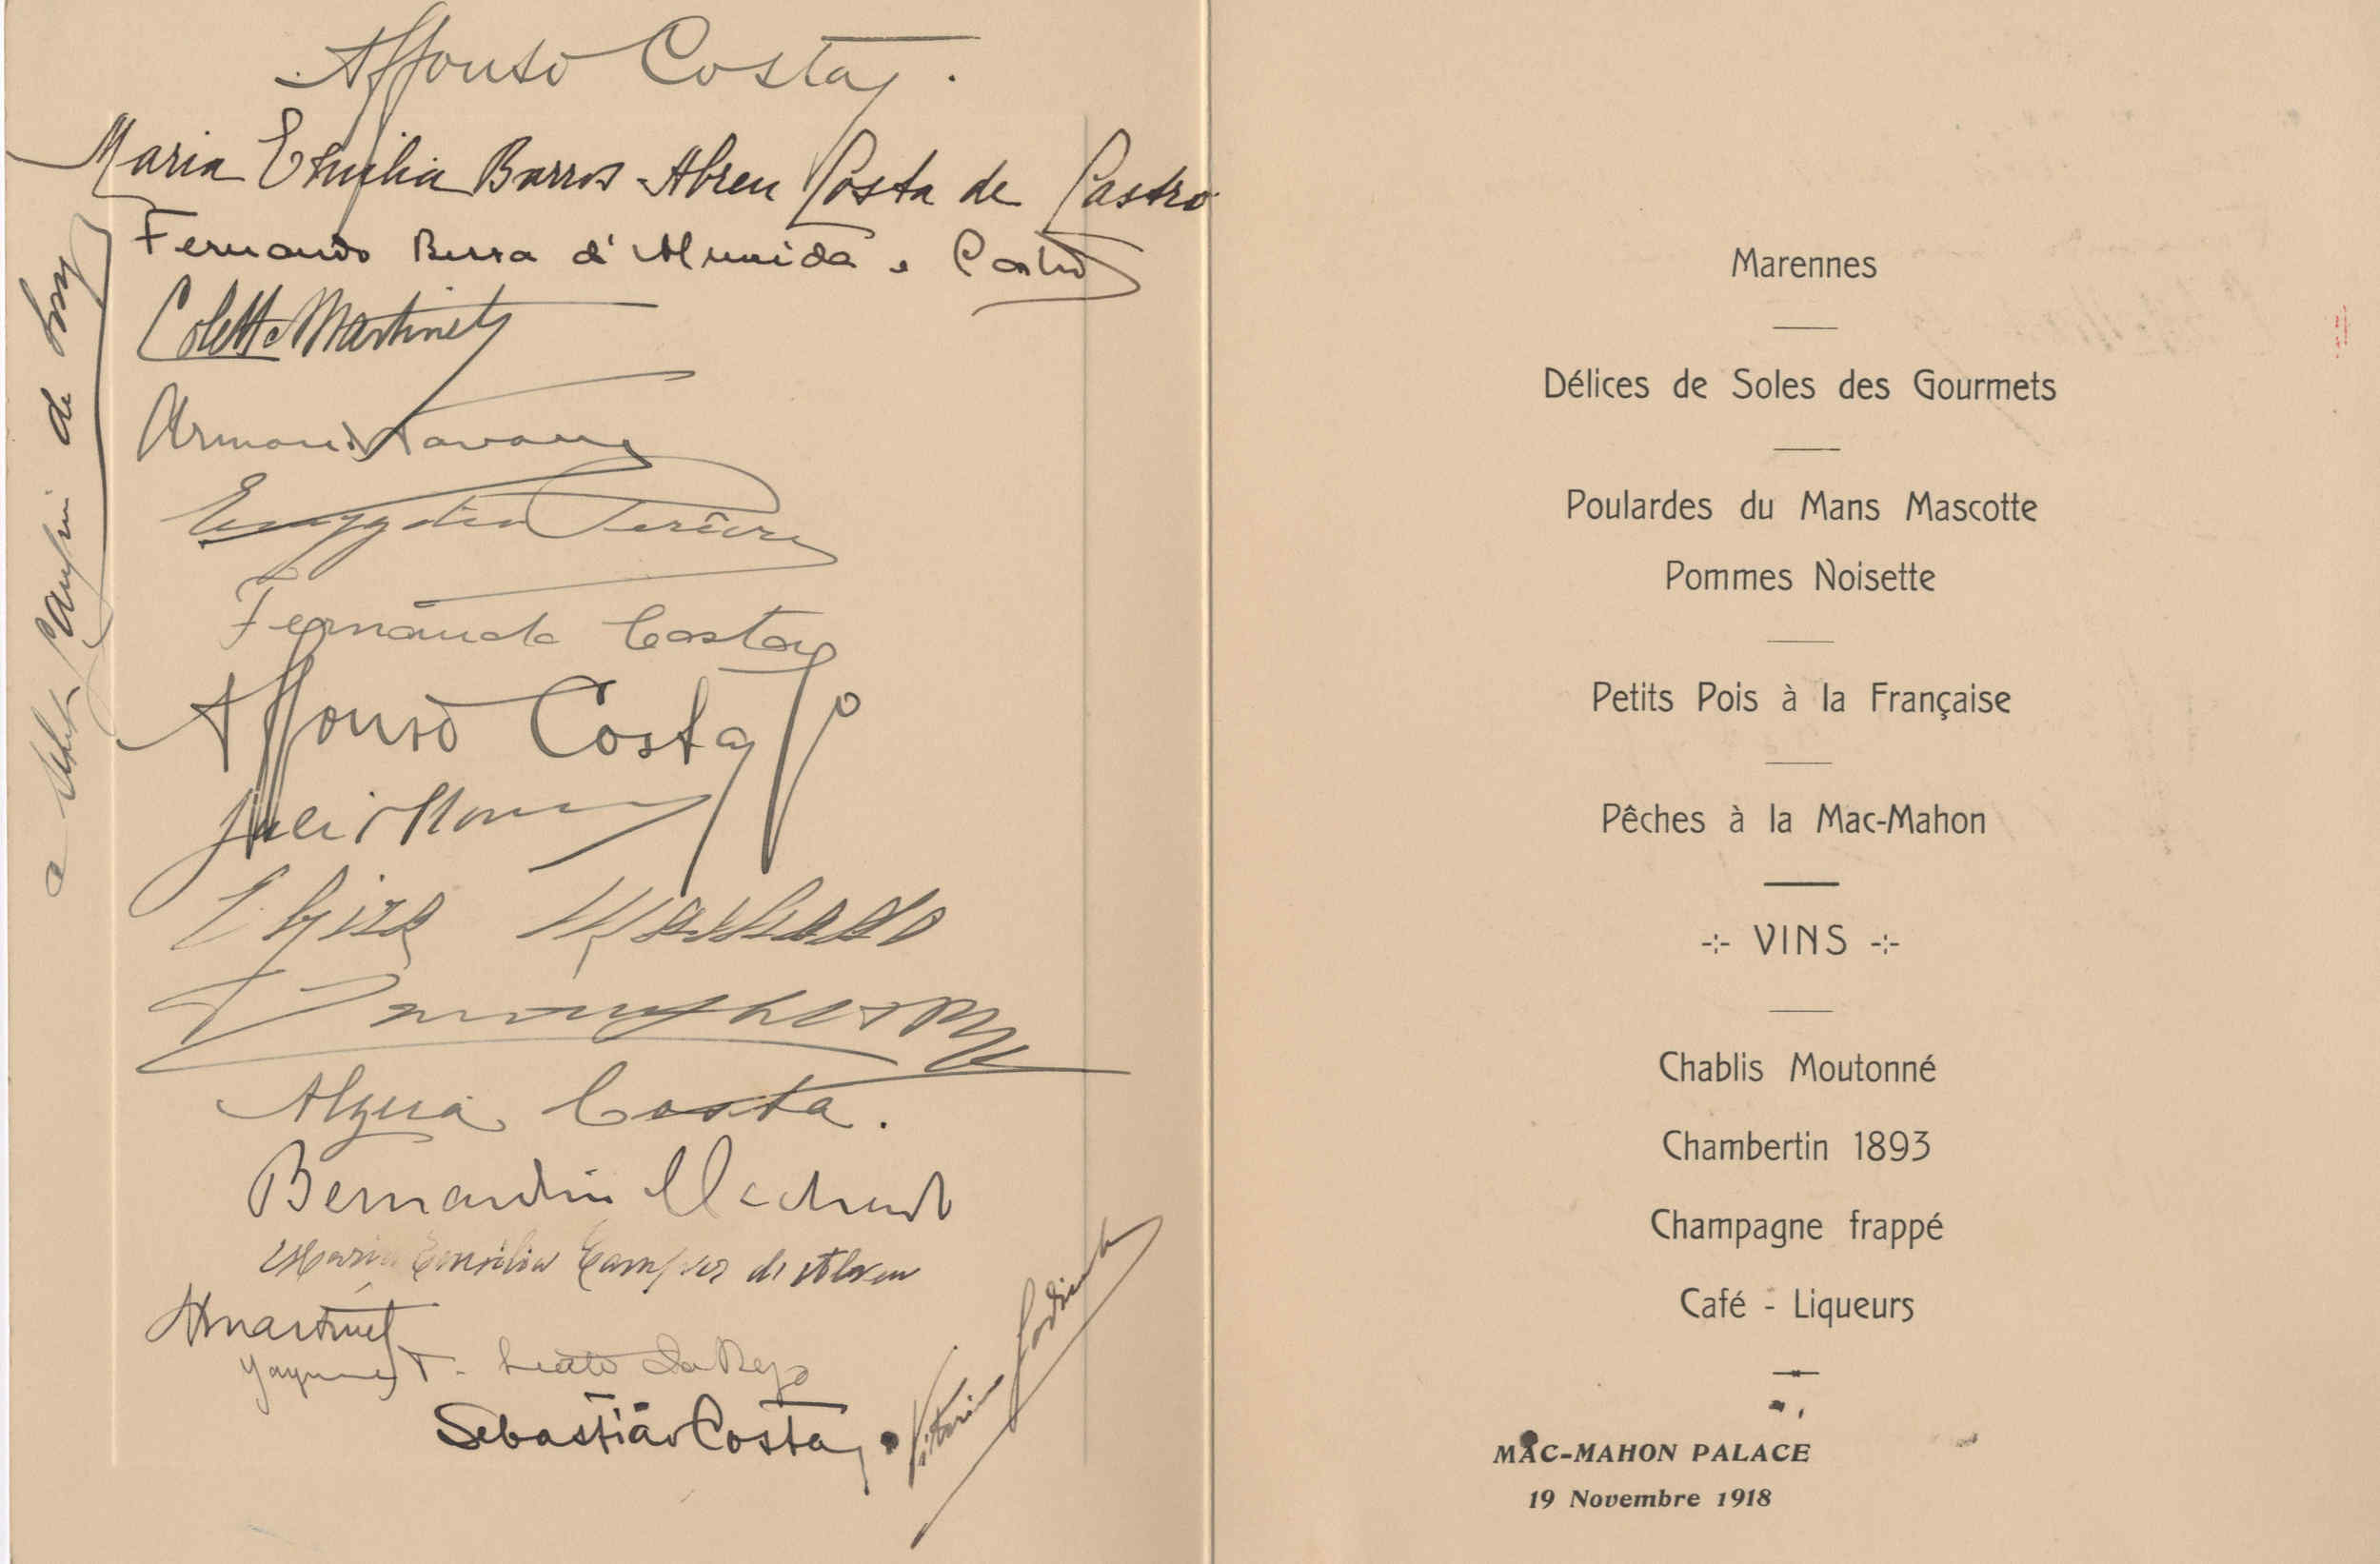 Affonso Costa.
Maria Emilia Barros Abreu Costa de Castro
Fernando d'Almeida e Castro
Colette Martinet
Armando Navarro
Emygdio
Fernanda Costa
Affonso Costa fº
Elzira Machado
Alzira Costa.
Bernardino Machado
Maria Emilia Campos de Abreu
AMartinet
T. da Rego
Sebastião Costa
Vitorino Godinho
de
Marennes
Délices de Soles des Gourmets
Poulardes du Mans Mascotte
Pommes Noisette
Petits Pois à la Française
Pêches à la Mac-Mahon
-:- VINS -:-
Chablis Moutonné
Chambertin 1893
Champagne frappé
Café - Liqueurs
MAC-MAHON PALACE
19 Novembre 1918